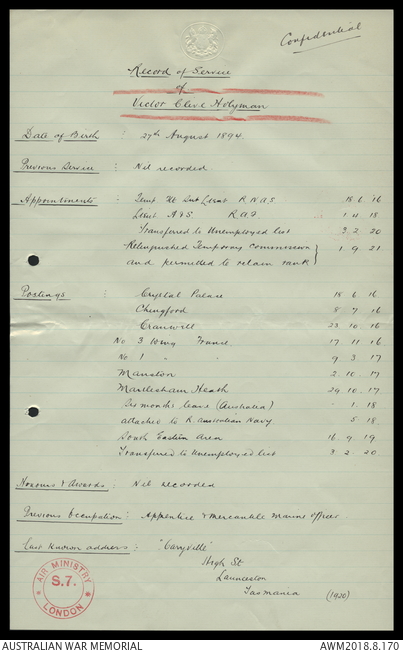 Confidential
Record of Service
of
Victor Clive Holyman
Date of Birth : 27th August 1894
Previous Service : Nil recorded
Appointments : Temp. Flt Sub Lieut R.N.A.S. 18 6 16
Lieut A & S R.A.F. 1. 4. 18
Transferred to Unemployed list 3. 2. 20
Relinquished Temporary commission
and permitted to retain rank } 1. 9. 21
Postings : Crystal Palace 18 6. 16
Chingford 8 7 16
Cranwell 23. 10. 16
No 3 Wing France 17 11 16
No 1 " " 9 3. 17
Manston 2. 10. 17
Martlesham Heath 29. 10. 17
Six months leave (Australia) - 1. 18
attached to R. Australian Navy 5. 18
South Eastern Area 16. 9. 19
Transferred to Unemployed list 3. 2. 20.
Honours & Awards : Nil recorded
Previous Occupation : Apprentice & mercantile marine officer.
Last known address : "Caryville"
High St
Launceston
Tasmania (1920)
AIR MINISTRY
S.7.
LONDON
AUSTRALIAN WAR MEMORIAL AWM2018.8.170